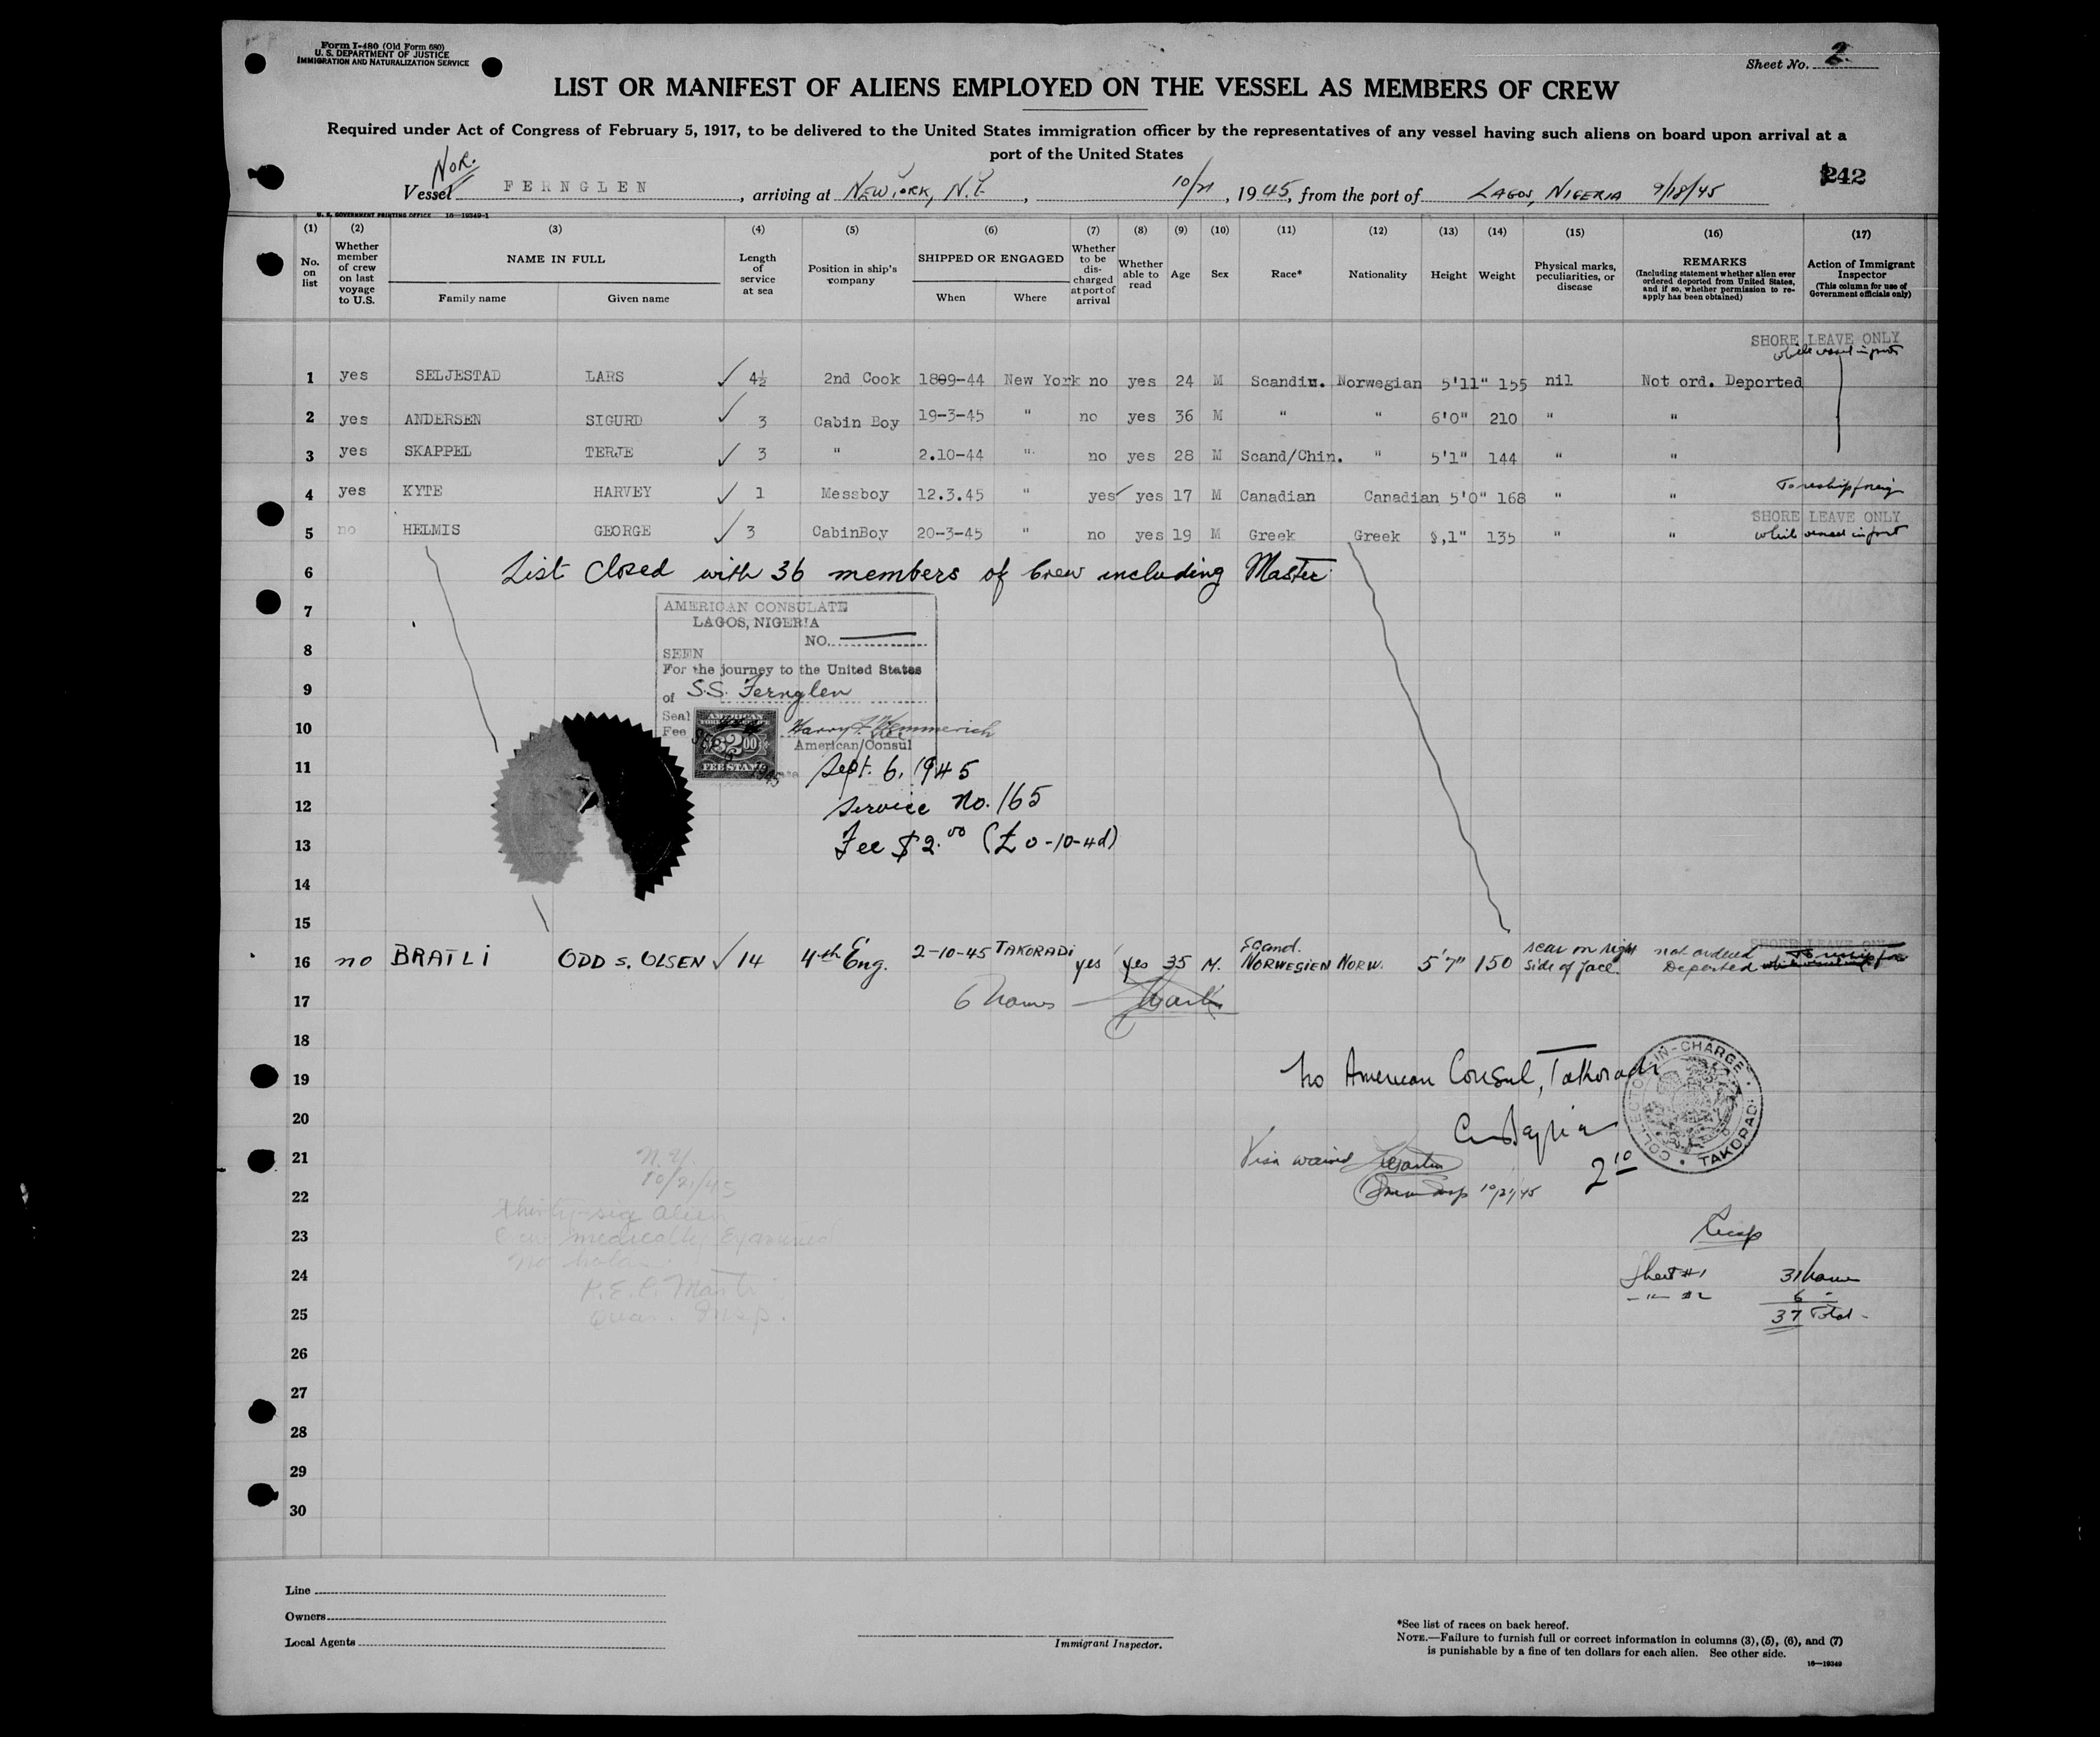 Form I-480 (Old Form 680)
U. S. DEPARTMENT OF JUSTICE
IMMIGRATION AND NATURALIZATION SERVICE
Sheet No. 2
LIST OR MANIFEST OF ALIENS EMPLOYED ON THE VESSEL AS MEMBERS OF CREW
Required under Act of Congress of February 5, 1917, to be delivered to the United States immigration officer by the representatives of any vessel having such aliens on board upon arrival at a
port of the United States
242
Nor.
Vessel FERNGLEN, arriving at NEW YORK, N.Y., 10/21, 1945, from the port of LAGOS, NIGERIA 9/18/45
U. S. GOVERNMENT PRINTING OFFICE 16—19349-1
(1) (2) (3) (4) (5) (6) (7) (8) (9) (10) (11) (12) (13) (14) (15) (16) (17)
No. on list
Whether member of crew on last voyage to U.S.
NAME IN FULL
Family name
Given name
Length of service at sea
Position in ship's company
SHIPPED OR ENGAGED
When
Where
Whether to be discharged at port of arrival
Whether able to read
Age
Sex
Race*
Nationality
Height
Weight
Physical marks, peculiarities, or disease
REMARKS
(Including statement whether alien ever ordered deported from United States, and if so, whether permission to reapply has been obtained)
Action of Immigrant Inspector
(This column for use of Government officials only)
SHORE LEAVE ONLY
while vessel in port
1 yes SELJESTAD LARS 4½ 2nd Cook 1809-44 New York no yes 24 M Scandin. Norwegian 5'11" 155 nil Not ord. Deported
2 yes ANDERSEN SIGURD 3 Cabin Boy 19-3-45 " no yes 36 M " " 6'0" 210 " "
3 yes SKAPPEL TERJE 3 " 2.10-44 " no yes 28 M Scand/Chin. " 5'1" 144 " "
4 yes KYTE HARVEY 1 Messboy 12.3.45 " yes yes 17 M Canadian Canadian 5'0" 168 " " To reship foreign
SHORE LEAVE ONLY
5 no HELMIS GEORGE 3 CabinBoy 20-3-45 " no yes 19 M Greek Greek ,1" 135 " " while vessel in port
6 List Closed with 36 members of Crew including Master
7 AMERICAN CONSULATE
LAGOS, NIGERIA
NO.
8 SEEN
For the journey to the United States
9 of S.S. Fernglen
Seal
10 Fee Harry F. Hemmerich
AMERICAN
$2.00
FEE STAMP
SEP 6 1945
Vice
American Consul
11 Sept. 6, 1945
12 Service No. 165
13 Fee $2.00 (£0-10-4d)
14
15
16 no BRATLI ODD S. OLSEN 14 4th Eng. 2-10-45 TAKORADI yes yes 35 M. Scand. NORWEGIEN NORW. 5'7" 150 scar on right side of face. not ordered Deported
SHORE LEAVE ONLY
17 6 Names
18
19 No American Consul, Takoradi
COLLECTOR-IN-CHARGE • TAKORADI •
20
21 Visa waived
2 10
22 10/21/45
N.Y.
10/21/45
thirty-six alien
23 Crew medically Examined
no holds.
Recap
24 R.E.C. Martin
Sheet #1 31 names
25 Quar. Insp.
" #2 6 "
37 Total
26
27
28
29
30
Line
Owners
Local Agents
Immigrant Inspector.
*See list of races on back hereof.
NOTE.—Failure to furnish full or correct information in columns (3), (5), (6), and (7)
is punishable by a fine of ten dollars for each alien. See other side.
16—19349